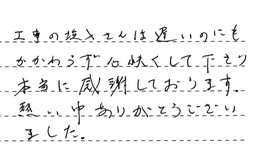 工事の技さんは遅いのにも
かかわらず心快くして下さり
本当に感謝しております。
熱い中ありがとうござい
ました。